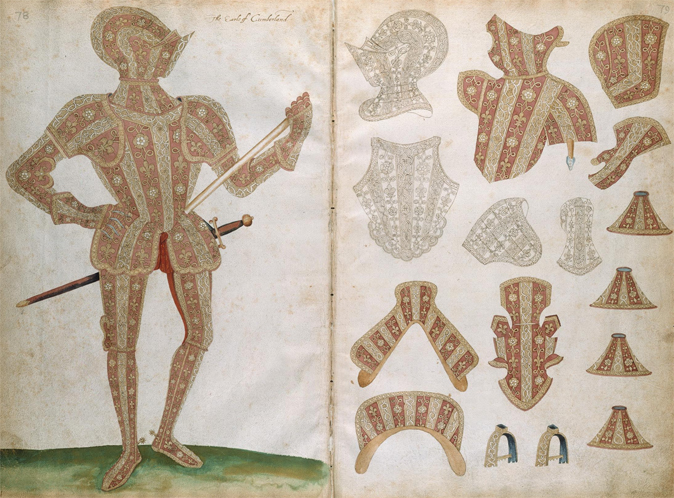 78
The Earle off Cumberland
79